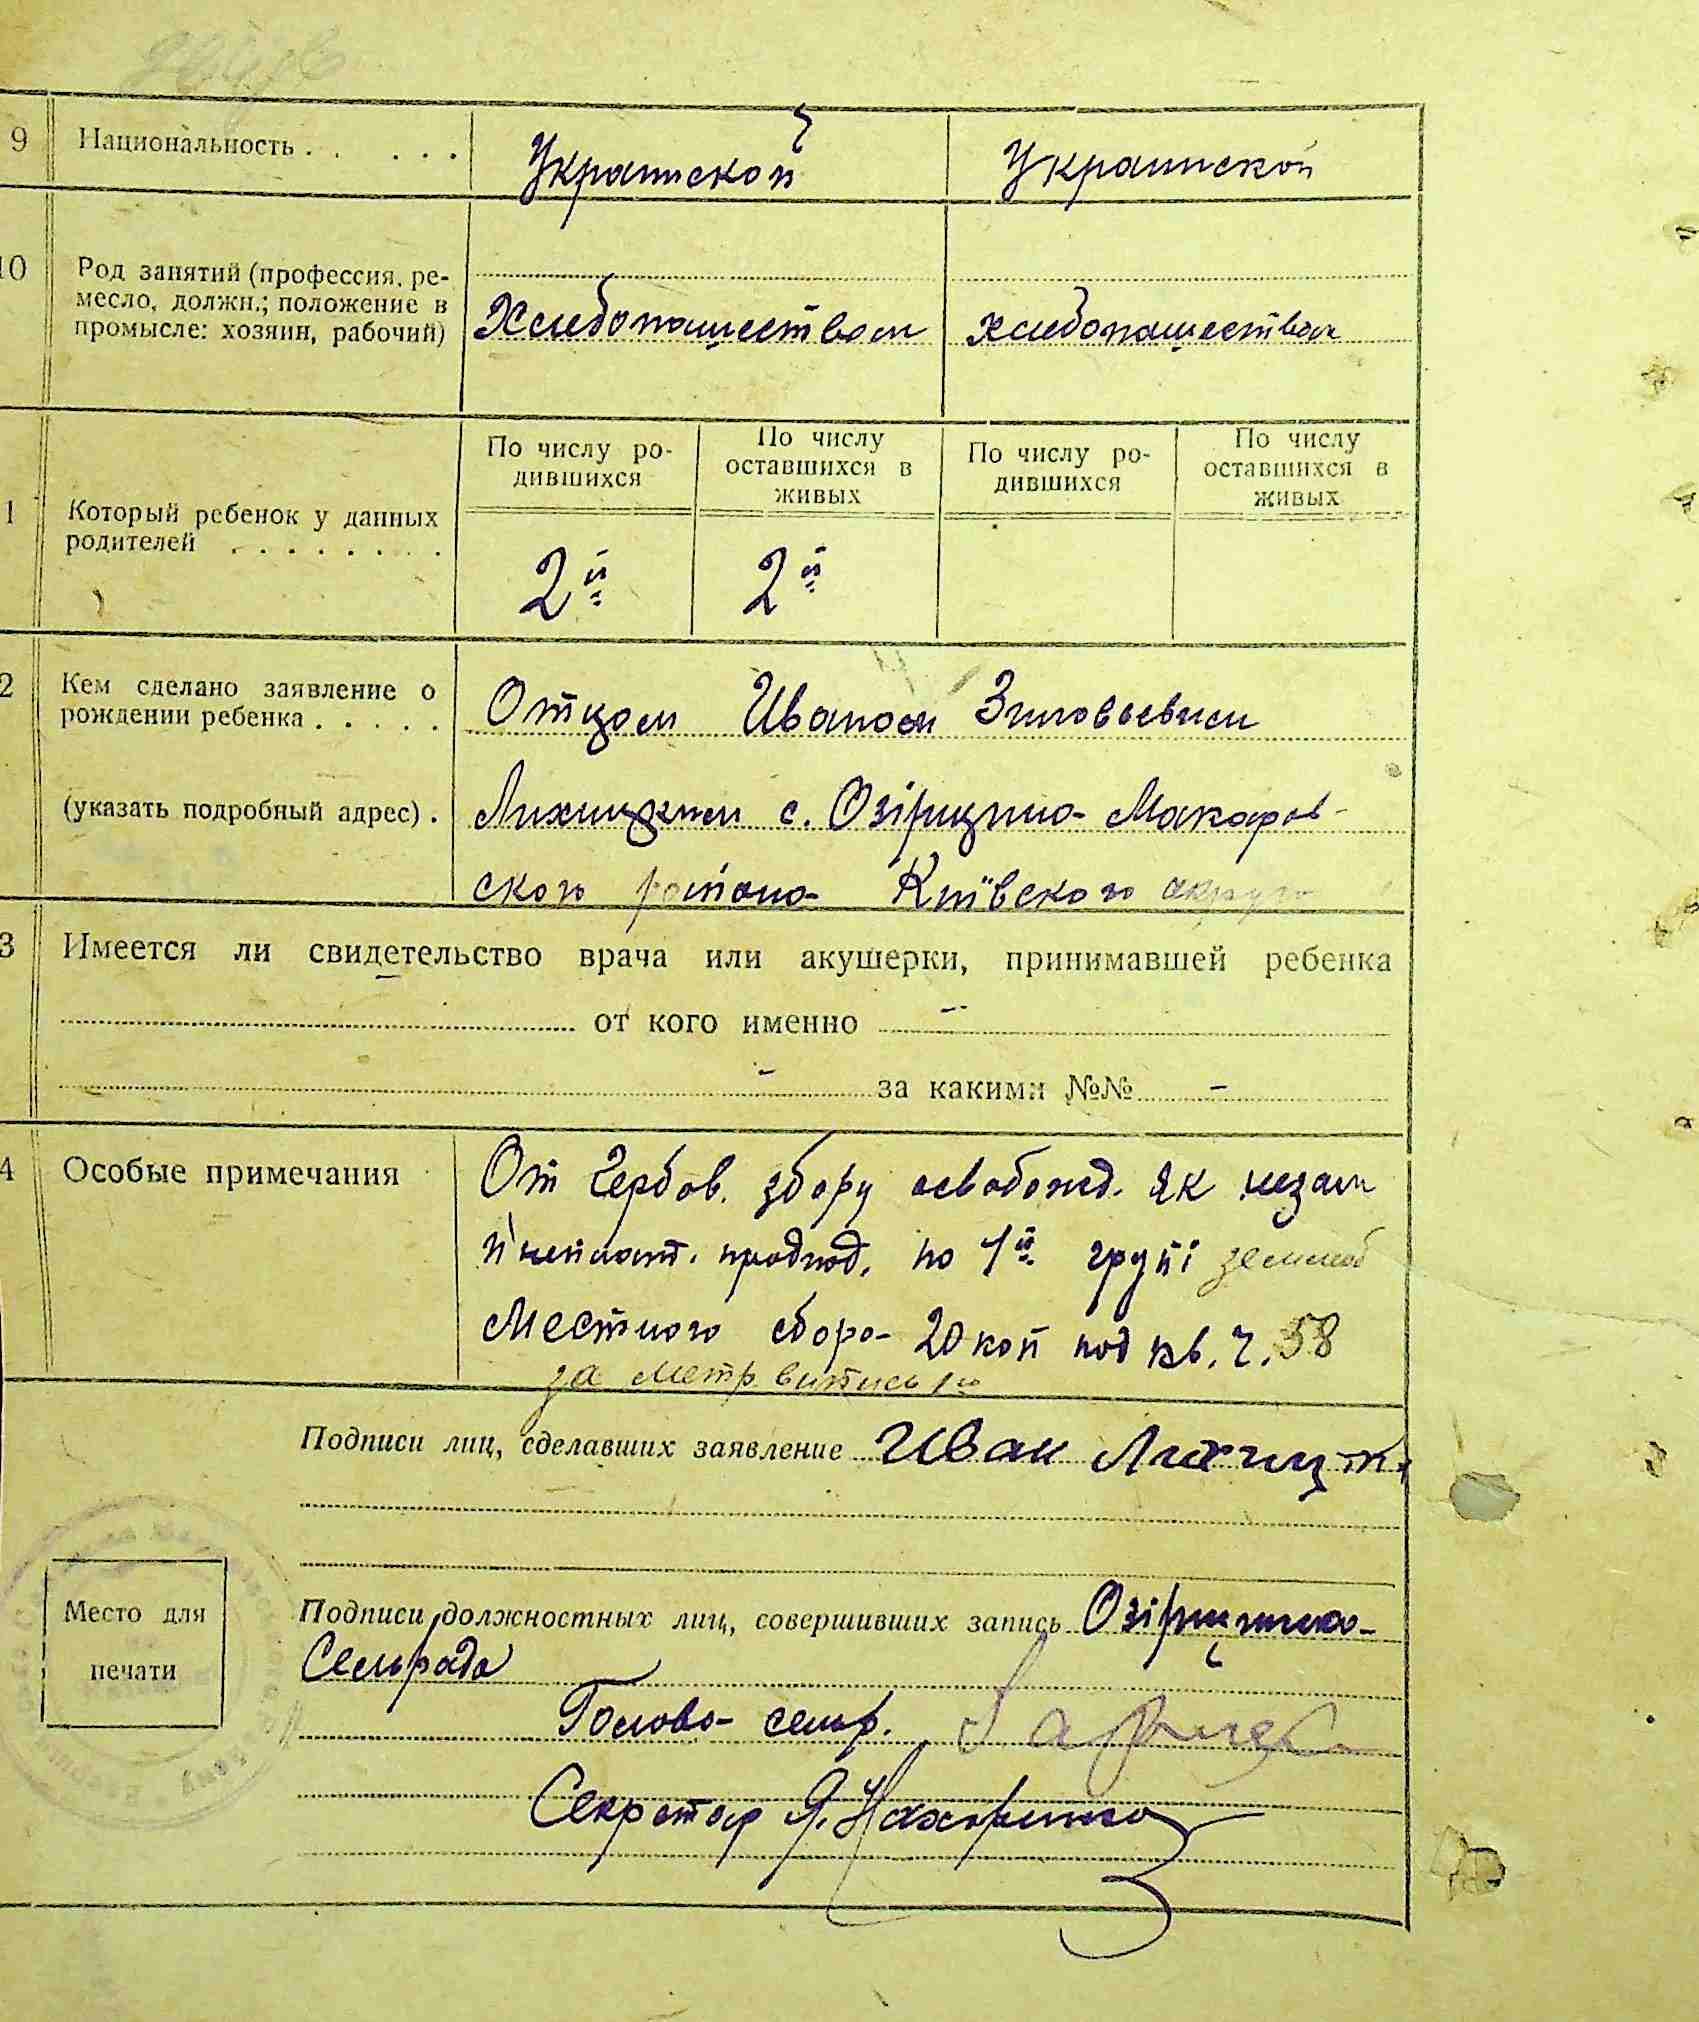 9 Национальность . . . . . Украинской Украинской
10 Род занятий (профессия, ре-
месло, должн.; положение в
промысле: хозяин, рабочий) Хлебопашеством хлебопашеством
1 Который ребенок у данных
родителей . . . . . . . .
По числу ро-
дившихся
По числу
оставшихся в
живых
По числу ро-
дившихся
По числу
оставшихся в
живых
2й 2й
2 Кем сделано заявление о
рождении ребенка . . . . . Отцом Иваном Зиновьевим
(указать подробный адрес) . с. Озірщина Макаров-
ского района Київского округа
3 Имеется ли свидетельство врача или акушерки, принимавшей ребенка
от кого именно –
– за какими №№ –
4 Особые примечания
От Гербов. збору освобожд. як незам
по 1й групі
Местного сбора 20 коп под кв. ч. 58
за метр
Подписи лиц, сделавших заявление Иван
Место для
печати
Подписи должностных лиц, совершивших запись
Сельрада
Голова сельр.
Секретар Я.